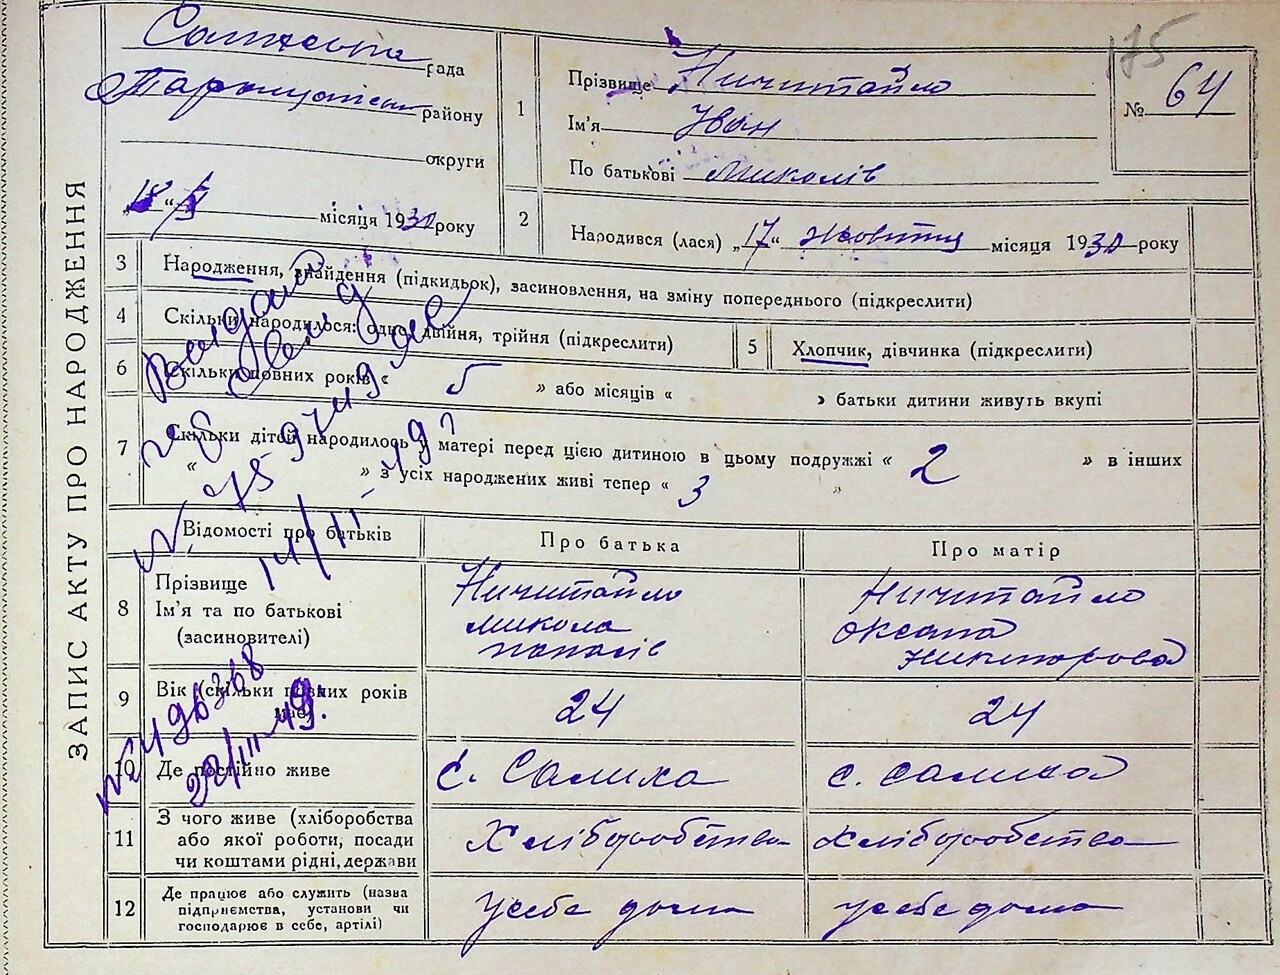 175
ЗАПИС АКТУ ПРО НАРОДЖЕННЯ
рада
району
округи
місяця 1930 року
1
Прізвище Ничитайло
Ім'я Іван
По батькові Миколів
№ 64
2
Народився (лася) „17“ жовтня місяця 1930 року
3 Народження, знайдення (підкидьок), засиновлення, на зміну попереднього (підкреслити)
4 Скільки народилося: одно, двійня, трійня (підкреслити)
5 Хлопчик, дівчинка (підкреслити)
6 Скільки повних років « 5 » або місяців « » батьки дитини живуть вкупі
7 Скільки дітей народилось у матері перед цією дитиною в цьому подружжі « 2 » в інших
« » з усіх народжених живі тепер « 3 »
Відомості про батьків Про батька Про матір
8 Прізвище Ничитайло Ничитайло
Ім'я та по батькові Микола Оксана
(засиновителі) Никифорова
9 Вік (скільки повних років 24 24
10 Де постійно живе с. Салиха с. Салиха
11 З чого живе (хліборобства Хліборобства Хліборобства
або якої роботи, посади
чи коштами рідні, держави
12 Де працює або служить (назва у себе дома у себе дома
підприємства, установи чи
господарює в себе, артілі)
видано
№ 75
14/II
22/III-49.